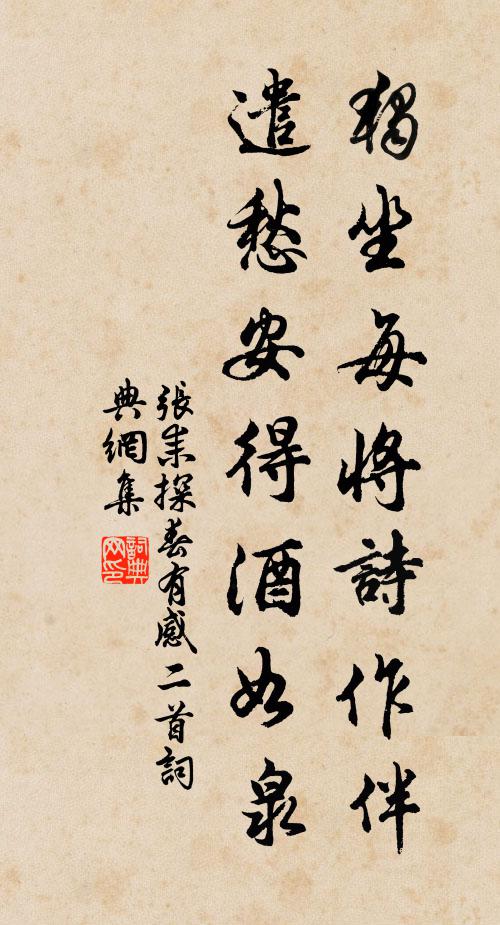 獨坐每將詩作伴
遣愁安得酒如泉
張耒探春有感二首詞
典網集
詞典網印